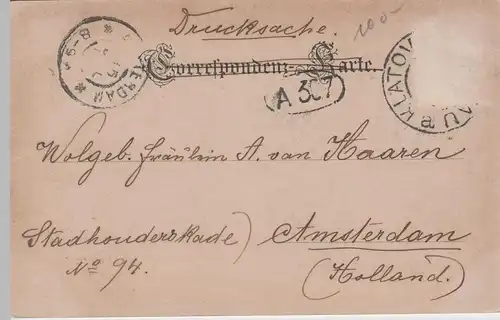 Drucksache.
100-
Correspondenz-Karte.
A 327
KLATOV
a
Wolgeb. Fräulein A. van Haaren
Stadhouderskade) Amsterdam
No 94. (Holland.)